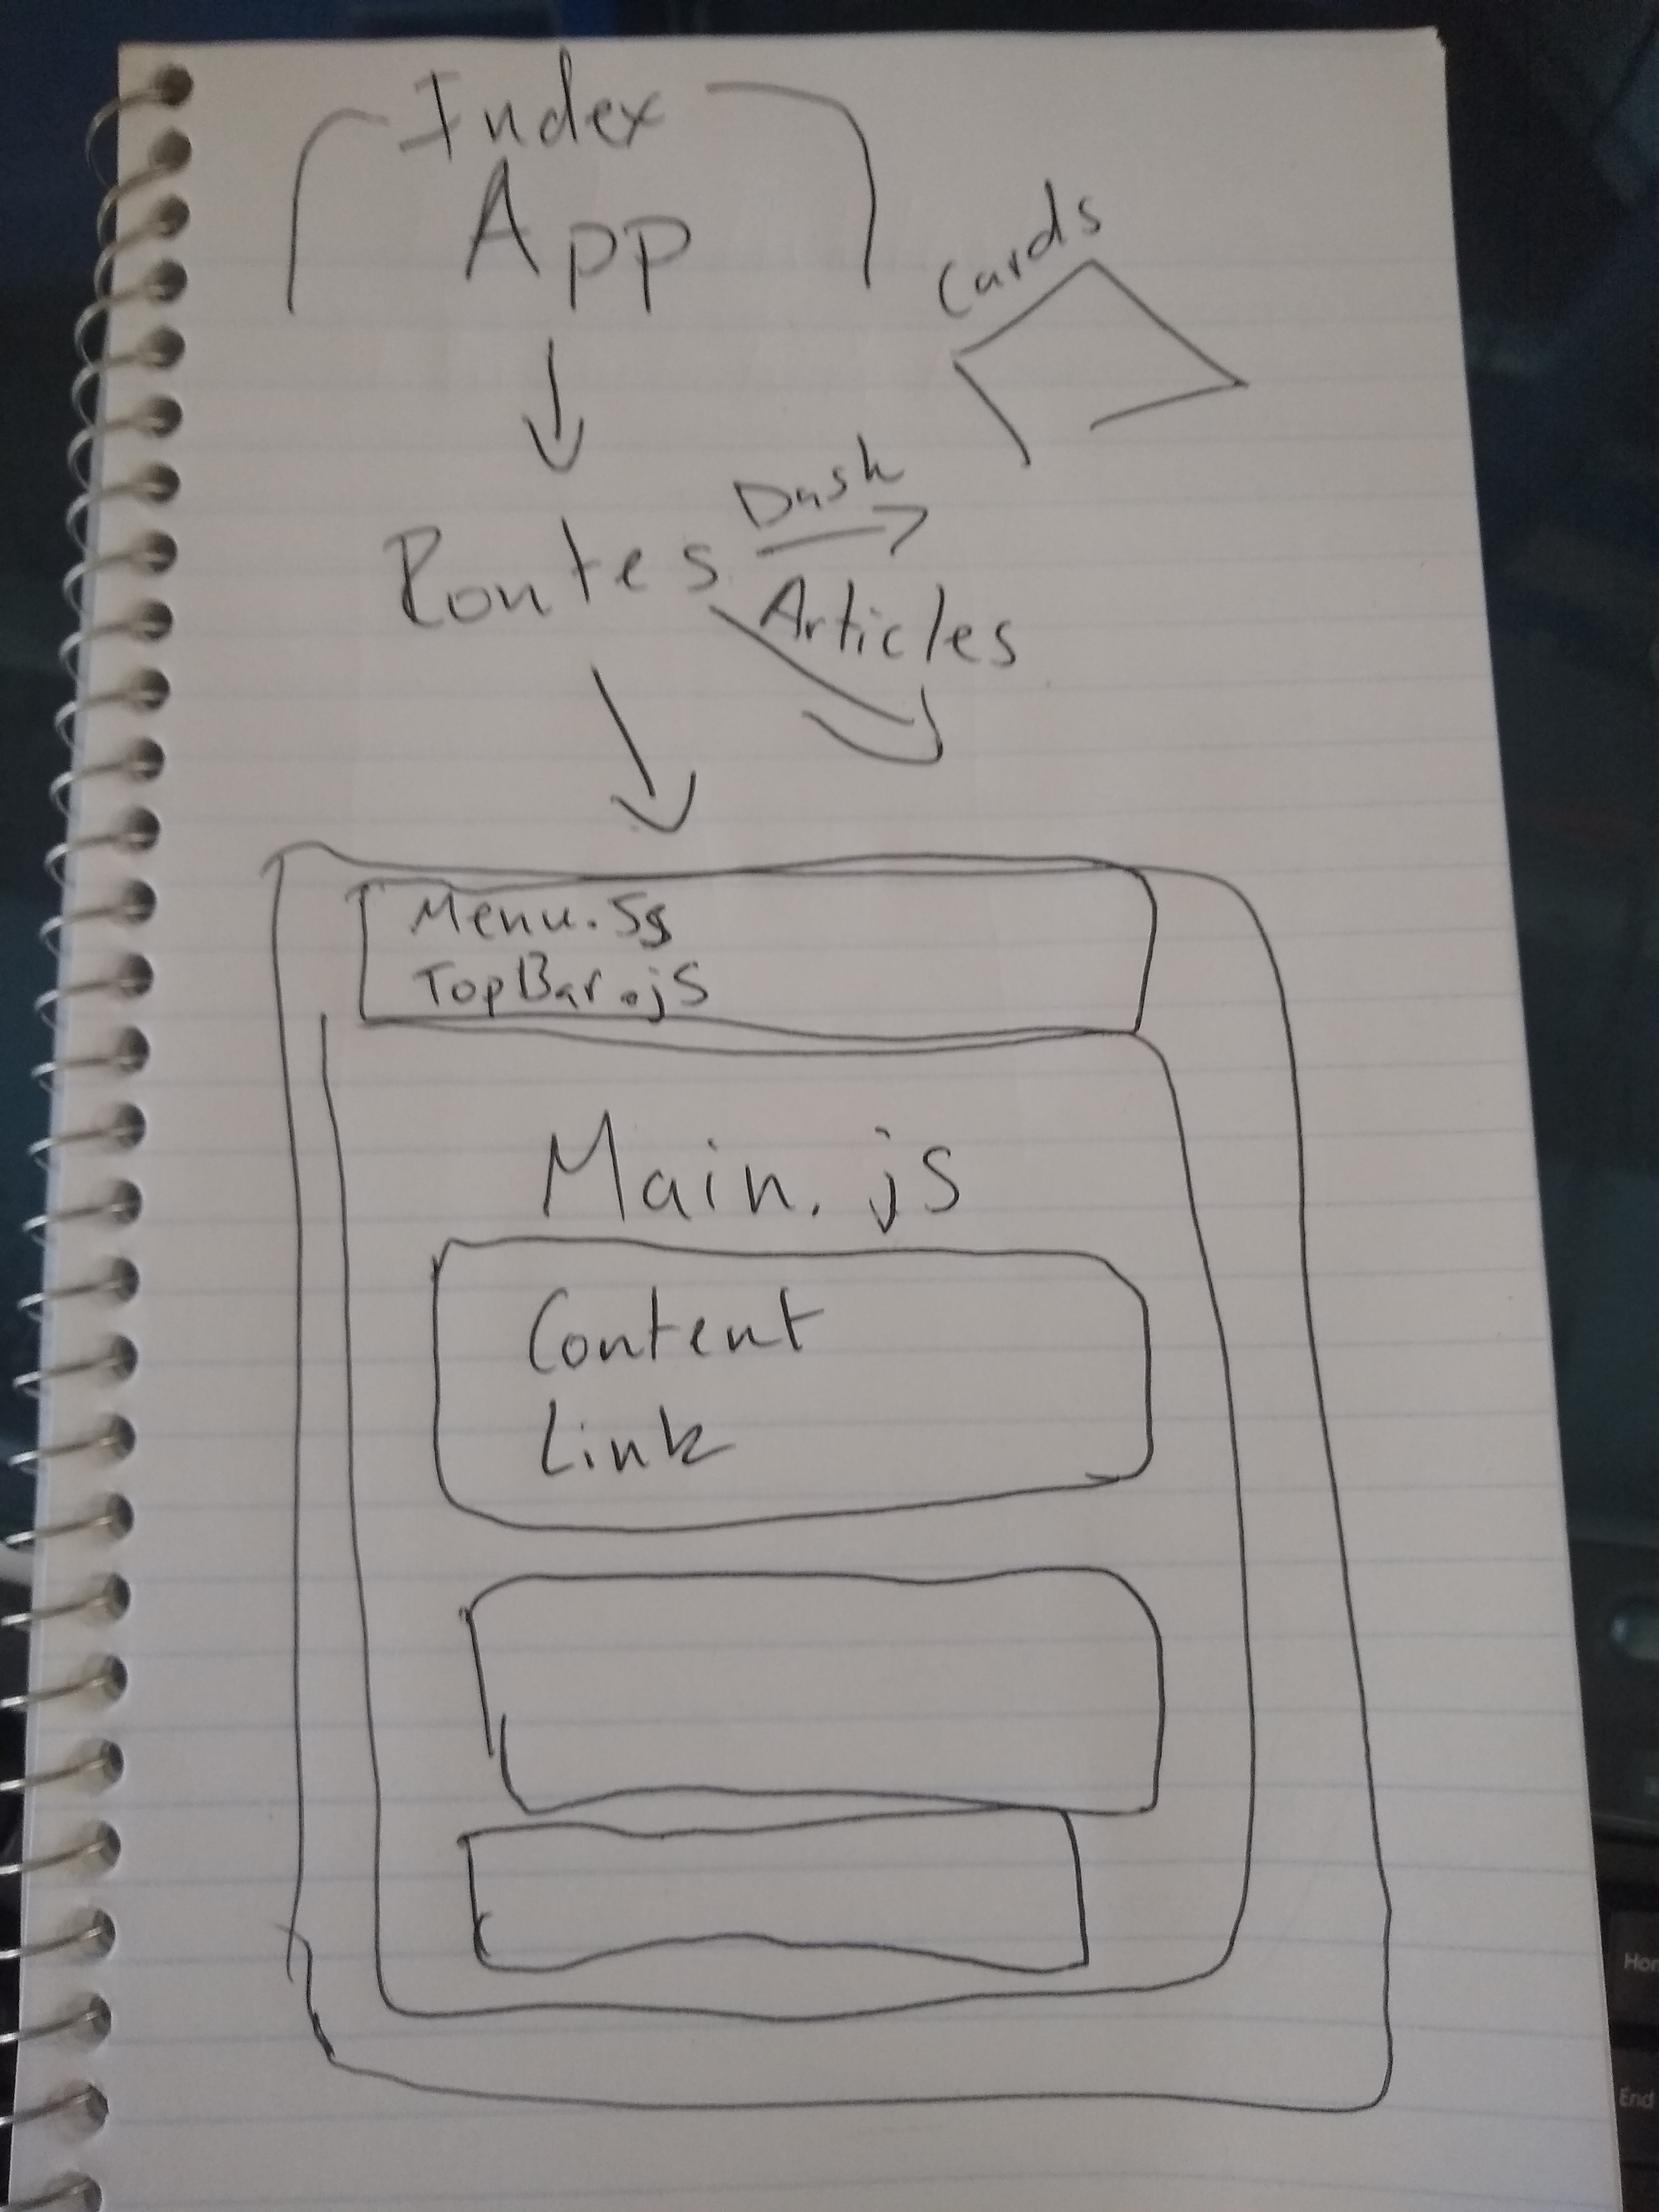 Index
App
Cards
Dash
Routes
Articles
Menu.Js
TopBar.js
Main.js
Content
Link
Hom
End